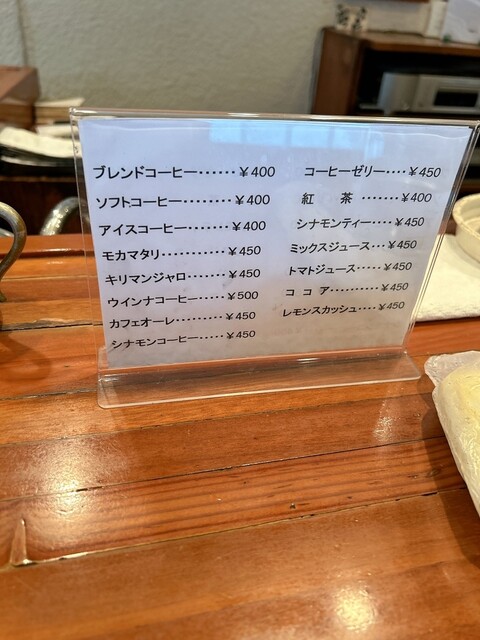 ブレンドコーヒー‥‥‥¥400
ソフトコーヒー‥‥‥‥¥400
アイスコーヒー‥‥‥‥¥400
モカマタリ‥‥‥‥‥¥450
キリマンジャロ‥‥‥‥¥450
ウインナコーヒー‥‥‥¥500
カフェオーレ‥‥‥‥¥450
シナモンコーヒー‥‥‥¥450
コーヒーゼリー‥‥¥450
紅　茶‥‥‥‥¥400
シナモンティー‥‥¥450
ミックスジュース‥‥¥450
トマトジュース‥‥‥¥450
コ コ ア‥‥‥‥¥450
レモンスカッシュ‥‥¥450